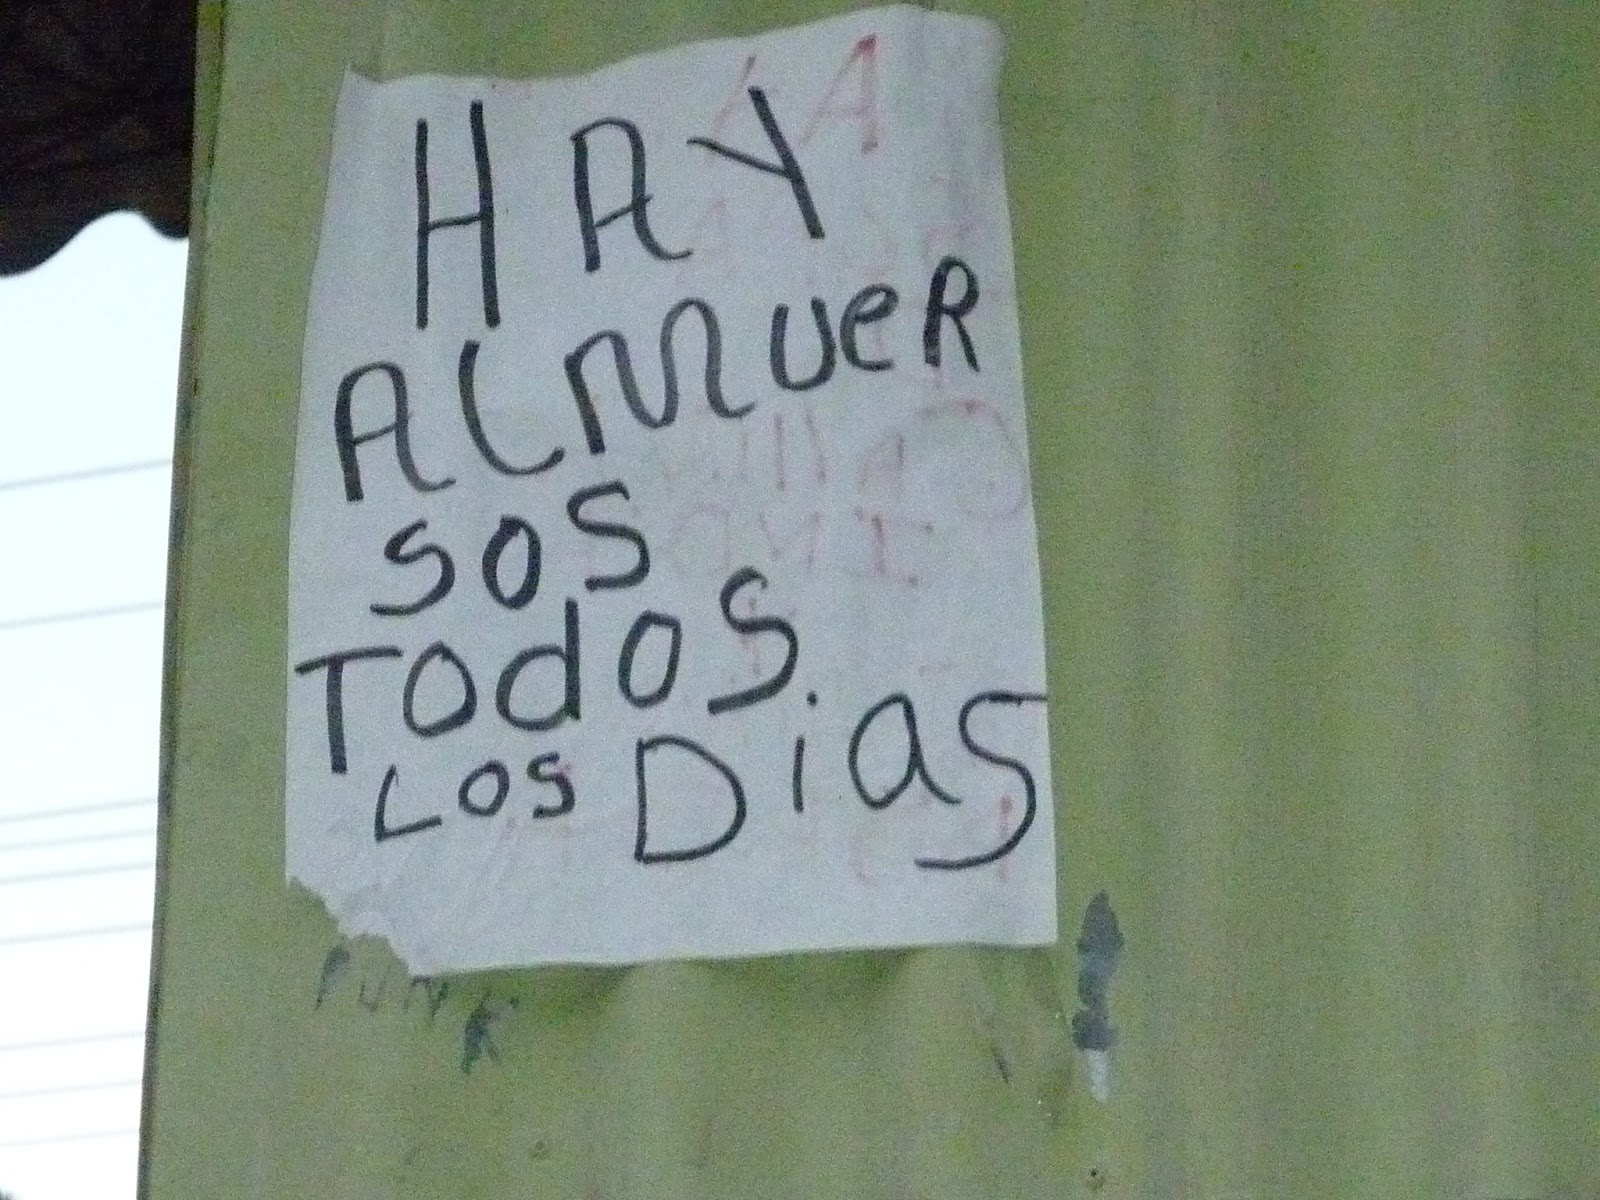 HAY
ALMUER
SOS
TODOS
LOS DiaS
PUNK